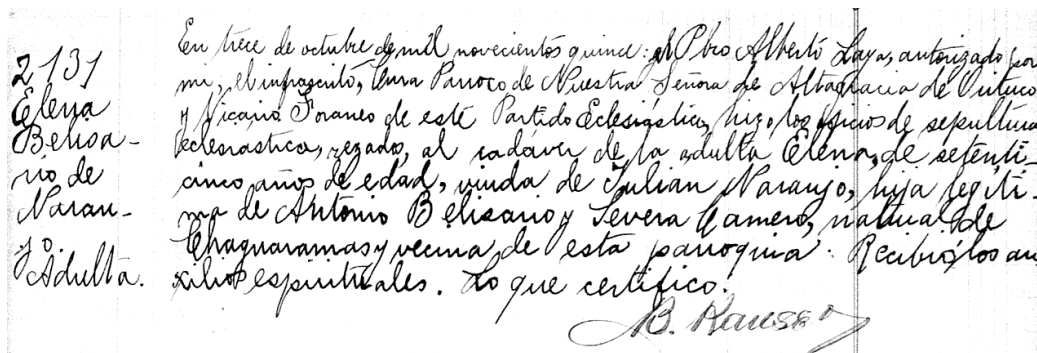 2131
Elena
Belisa-
rio de
Naran-
jo.
Adulta.
En trece de octubre de mil novecientos quince: el Pbro Alberto Laya, autorizado por
mi, el infrascrito, Cura Párroco de Nuestra Señora de Altagracia de Orituco
y Vicario Foraneo de este Partido Eclesiástico, hizo los oficios de sepultura
eclesiastica, rezado, al cadáver de la adulta Elena, de setenti-
cinco años de edad, viuda de Julian Naranjo, hija legíti-
ma de Antonio Belisario y Severa Camero, natural de
Chaguaramas y vecina de esta parroquia. Recibió los au-
xilios espirituales. Lo que certifico.
B.